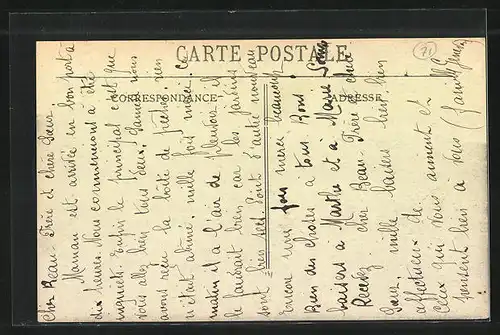 CARTE POSTALE
CORRESPONDANCE
ADRESSE
71
Cher Beau-Frère et chère Sœur,
Maman est arrivée en bon port à
dix heures. Nous commencions à être
inquiets. Enfin le principal c'est que
vous allez bien tous deux. Samedi nous
avons reçu la boîte de rien
n'était abîmé. mille fois merci. Ce
matin il a l'air de pleuvoir il
le faudrait bien car les jardins
sont bien secs. Pont d'autre nouveau
Encore une fois merci beaucoup.
Bien des choses à tous Bons
baisers à Marthe et à Mami
Recevez cher Beau-Frère et chère
Sœur mille baisers bien bien
affectueux de
ceux qui vous aiment et
pensent bien à vous (famille